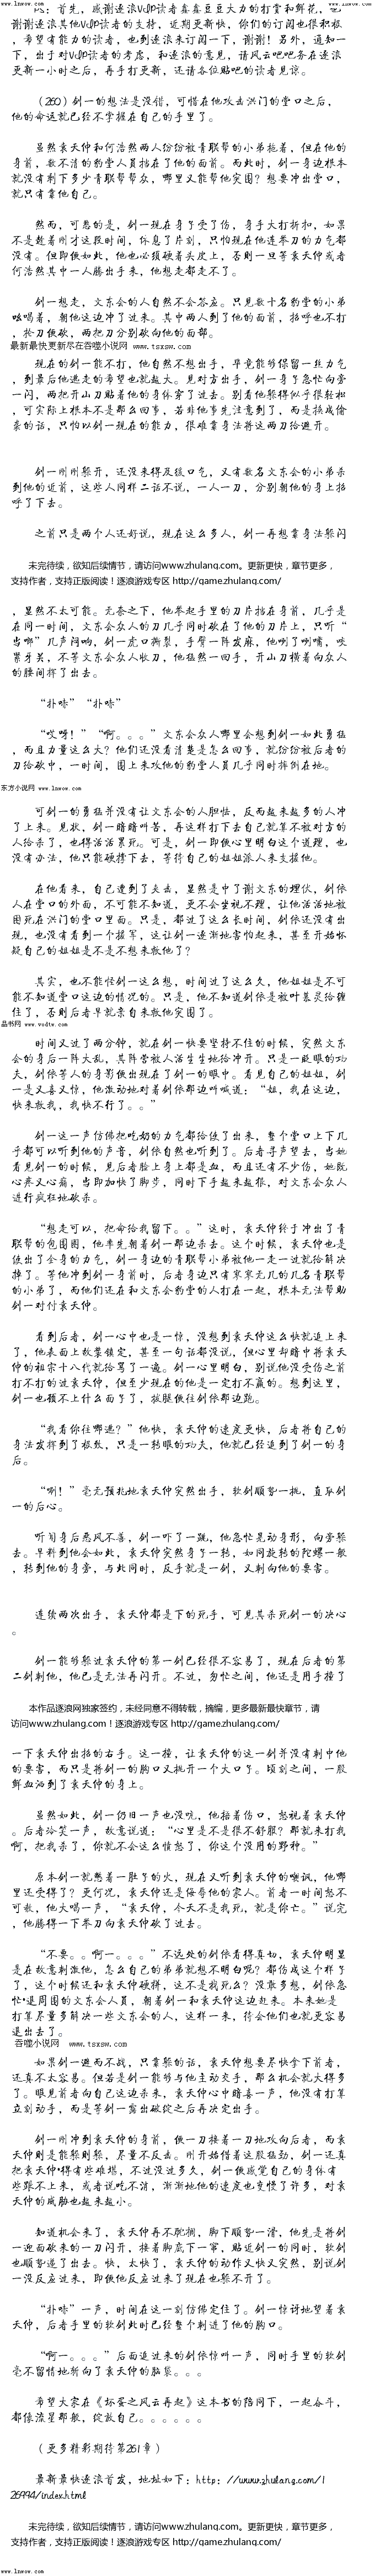 www.lnwow.com
www.lnwow.com
PS：首先，感谢逐浪Vclp读者鑫鑫豆豆大力的打赏和鲜花，也
谢谢逐浪其他Vclp读者的支持，近期更新快，你们的订阅也很积极
，希望有能力的读者，也到逐浪来订阅一下，谢谢！另外，通知一
下，出于对Vclp读者的考虑，和逐浪的意见，请风云吧吧务在逐浪
更新一小时之后，再手打更新，还请各位贴吧的读者见谅。
（260）剑一的想法是没错，可惜在他攻击洪门的堂口之后，
他的命运就已经不掌握在自己的手里了。
虽然袁天仲和何浩然两人纷纷被青联帮的小弟拖着，但在他的
身前，数不清的豹堂人员挡在了他的面前。而此时，剑一身边根本
就没有剩下多少青联帮帮众，哪里又能帮他突围？想要冲出堂口，
就只有靠他自己。
然而，可悲的是，剑一现在身子受了伤，身手大打折扣，如果
不是趁着刚才这段时间，休息了片刻，只怕现在他连举刀的力气都
没有。但即便如此，他也必须硬着头皮上，否则一旦等袁天仲或者
何浩然其中一人腾出手来，他想走都走不了。
剑一想走，文东会的人自然不会答应。只见数十名豹堂的小弟
吆喝着，朝他这边冲了过来。其中两人到了他的面前，招呼也不打
，抡刀便砍，两把刀分别砍向他的面部。
最新最快更新尽在吞噬小说网 www.tsxsw.com
现在的剑一能不打，他自然不想出手，毕竟能够保留一丝力气
，到最后他逃走的希望也就越大。见对方出手，剑一身子急忙向旁
一闪，两把开山刀贴着他的身体穿了过去。别看他躲得似乎很轻松
，可实际上根本不是那么回事，若非他事先注意到了，而是换成偷
袭的话，只怕以剑一现在的能力，很难靠身法将这两刀给避开。
剑一刚刚躲开，还没来得及缓口气，又有数名文东会的小弟杀
到他的近前，这些人同样二话不说，一人一刀，分别朝他的身上招
呼了下去。
之前只是两个人还好说，现在这么多人，剑一再想靠身法躲闪
未完待续，欲知后续情节，请访问www.zhulang.com。更新更快，章节更多，
支持作者，支持正版阅读！逐浪游戏专区 http://game.zhulang.com/
，显然不太可能。无奈之下，他举起手里的刀片挡在身前，几乎是
在同一时间，文东会众人的刀几乎同时砍在了他的刀片上，只听“
当啷”几声闷响，剑一虎口撕裂，手臂一阵发麻，他咧了咧嘴，咬
紧牙关，不等文东会众人收刀，他猛然一回手，开山刀横着向众人
的腰间挥了出去。
“扑哧”“扑哧”
“哎呀！”“啊。。。”文东会众人哪里会想到剑一如此勇猛
，而且力量这么大？他们还没看清楚是怎么回事，就纷纷被后者的
刀给砍中，一时间，围上来攻他的豹堂人员几乎同时摔倒在地。
东方小说网 www.lnwow.com
可剑一的勇猛并没有让文东会的人胆怯，反而越来越多的人冲
了上来。见状，剑一暗暗叫苦，再这样打下去自己就算不被对方的
人给杀了，也得活活累死。可是，剑一即便心里明白这个道理，也
没有办法，他只能硬撑下去，等待自己的姐姐派人来支援他。
在他看来，自己遭到了夹击，显然是中了谢文东的埋伏，剑依
人在堂口的外面，不可能不知道，更不会坐视不理，让他活活地被
困死在洪门的堂口里面。只是，都过了这么长时间，剑依还没有出
现，也没有看到一个援军，这让剑一逐渐地害怕起来，甚至开始怀
疑自己的姐姐是不是不想来救他了？
其实，也不能怪剑一这么想，时间过了这么久，他姐姐是不可
能不知道堂口这边的情况的。只是，他不知道剑依是被叶慕灵给缠
住了，否则后者早就亲自来救他突围了。
品书网 www.vodtw.com
时间又过了两分钟，就在剑一快要坚持不住的时候，突然文东
会的身后一阵大乱，其阵营被人活生生地给冲开。只是一眨眼的功
夫，剑依等人的身影便出现在了剑一的眼中。看见自己的姐姐，剑
一是又喜又惊，他激动地对着剑依那边叫喊道：“姐，我在这边，
快来救我，我快不行了。。”
剑一这一声仿佛把吃奶的力气都给使了出来，整个堂口上下几
乎都可以听到他的声音，剑依自然也听到了。后者寻声望去，当她
看见剑一的时候，见后者脸上身上都是血，而且还有不少伤，她既
心疼又心痛，当即加快了脚步，同时下手越来越狠，对文东会众人
进行疯狂地砍杀。
“想走可以，把命给我留下。。”这时，袁天仲终于冲出了青
联帮的包围圈，他率先朝着剑一那边杀去。这个时候，袁天仲也是
使出了全身的力气，剑一身边的青联帮小弟被他一走一过就给解决
掉了。等他冲到剑一身前时，后者身边只有寥寥无几的几名青联帮
的小弟了，而他们还在和文东会豹堂的人打在一起，根本无法帮助
剑一对付袁天仲。
看到后者，剑一心中也是一惊，没想到袁天仲这么快就追上来
了，他表面上故作镇定，甚至一句话都没说，但心里却暗中将袁天
仲的祖宗十八代就给骂了一遍。剑一心里明白，别说他没受伤之前
打不打的过袁天仲，但至少现在的他是一定打不赢的。想到这里，
剑一也顾不上什么面子了，拔腿便往剑依那边跑。
“我看你往哪逃？”他快，袁天仲的速度更快，后者将自己的
身法发挥到了极致，只是一转眼的功夫，他就已经追到了剑一的身
后。
“唰！”毫无预兆地袁天仲突然出手，软剑顺势一挑，直取剑
一的后心。
听闻身后恶风不善，剑一吓了一跳，他急忙晃动身形，向旁躲
去。早料到他会如此，袁天仲突然身子一转，如同旋转的陀螺一般
，转到他的身旁，与此同时，反手就是一剑，又刺向他的要害。
连续两次出手，袁天仲都是下的死手，可见其杀死剑一的决心
。
剑一能够躲过袁天仲的第一剑已经很不容易了，现在后者的第
二剑刺他，他已是无法再闪开。不过，匆忙之间，他还是用手撞了
本作品逐浪网独家签约，未经同意不得转载，摘编，更多最新最快章节，请
访问www.zhulang.com！逐浪游戏专区 http://game.zhulang.com/
一下袁天仲出招的右手。这一撞，让袁天仲的这一剑并没有刺中他
的要害，而只是将剑一的胸口又挑开一个大口子。顷刻之间，一股
鲜血洒到了袁天仲的身上。
虽然如此，剑一仍旧一声也没吭，他捂着伤口，怒视着袁天仲
。后者冷笑一声，故意说道：“心里是不是很不舒服？那就来打我
啊，把我杀了，你就不会这么愤怒了，你这个没用的野种。”
原本剑一就憋着一肚子的火，现在又听到袁天仲的嘲讽，他哪
里还受得了？更何况，袁天仲还是侮辱他的家人。首者一时间怒不
可赦，他大喝一声，“袁天仲，今天不是我死，就是你亡。”说完
，他腾得一下举刀向袁天仲砍了过去。
“不要。。啊一。。。”不远处的剑依看得真切，袁天仲明显
是在故意刺激他，怎么自己的弟弟就想不明白呢？都伤成这个样子
了，这个时候还和袁天仲硬拼，这不是找死么？没敢多想，剑依急
忙退周围的文东会人员，朝着剑一和袁天仲这边赶来。本来她是
打算尽量多解决一些文东会的人，这样一来，待会他们也就更容易
退出去了。
吞噬小说网 www.tsxsw.com
如果剑一避而不战，只靠躲的话，袁天仲想要尽快拿下前者，
还真不太容易。但若是剑一能够与他主动交手，那么机会就大得多
了。眼见前者向自己这边杀来，袁天仲心中暗喜一声，他没有打算
立刻动手，而是等剑一露出破绽之后再决定出手。
剑一刚冲到袁天仲的身前，便一刀接着一刀地攻向后者，而袁
天仲则是能躲则躲，尽量不反击。刚开始借着这股猛劲，剑一还真
把袁天仲得有些难堪，不过没过多久，剑一便感觉自己的身体有
些跟不上来，或者说吃不消，渐渐地他的速度也变慢了许多，对袁
天仲的威胁也越来越小。
知道机会来了，袁天仲再不耽搁，脚下顺势一滑，他先是将剑
一迎面砍来的一刀闪开，接着脚底下一窜，贴近剑一的同时，软剑
也顺势递了出去。快，太快了，袁天仲的动作又快又突然，别说剑
一没反应过来，即便他反应过来了现在也躲不开了。
“扑哧”一声，时间在这一刻仿佛定住了。剑一惊讶地望着袁
天仲，后者手里的软剑此时已经整个刺进了他的胸口。
“啊一。。。”后面追过来的剑依惊叫一声，同时手里的软剑
毫不留情地斩向了袁天仲的脑袋。。。
希望大家在《坏蛋之风云再起》这本书的陪同下，一起奋斗，
都像流星那般，绽放自己。。。。。。
（更多精彩期待第261章）
最新最快逐浪首发，地址如下：http：//www.zhulang.com/1
26994/index.html
未完待续，欲知后续情节，请访问www.zhulang.com。更新更快，章节更多，
支持作者，支持正版阅读！逐浪游戏专区 http://game.zhulang.com/
www.lnwow.com